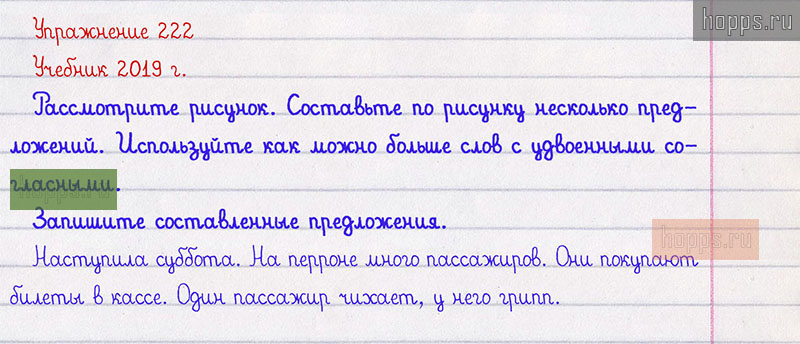 hopps.ru
Упражнение 222
Учебник 2019 г.
Рассмотрите рисунок. Составьте по рисунку несколько пред-
ложений. Используйте как можно больше слов с удвоенными со-
гласными.
hopps.ru
Запишите составленные предложения.
hopps.ru
Наступила суббота. На перроне много пассажиров. Они покупают
билеты в кассе. Один пассажир чихает, у него грипп.